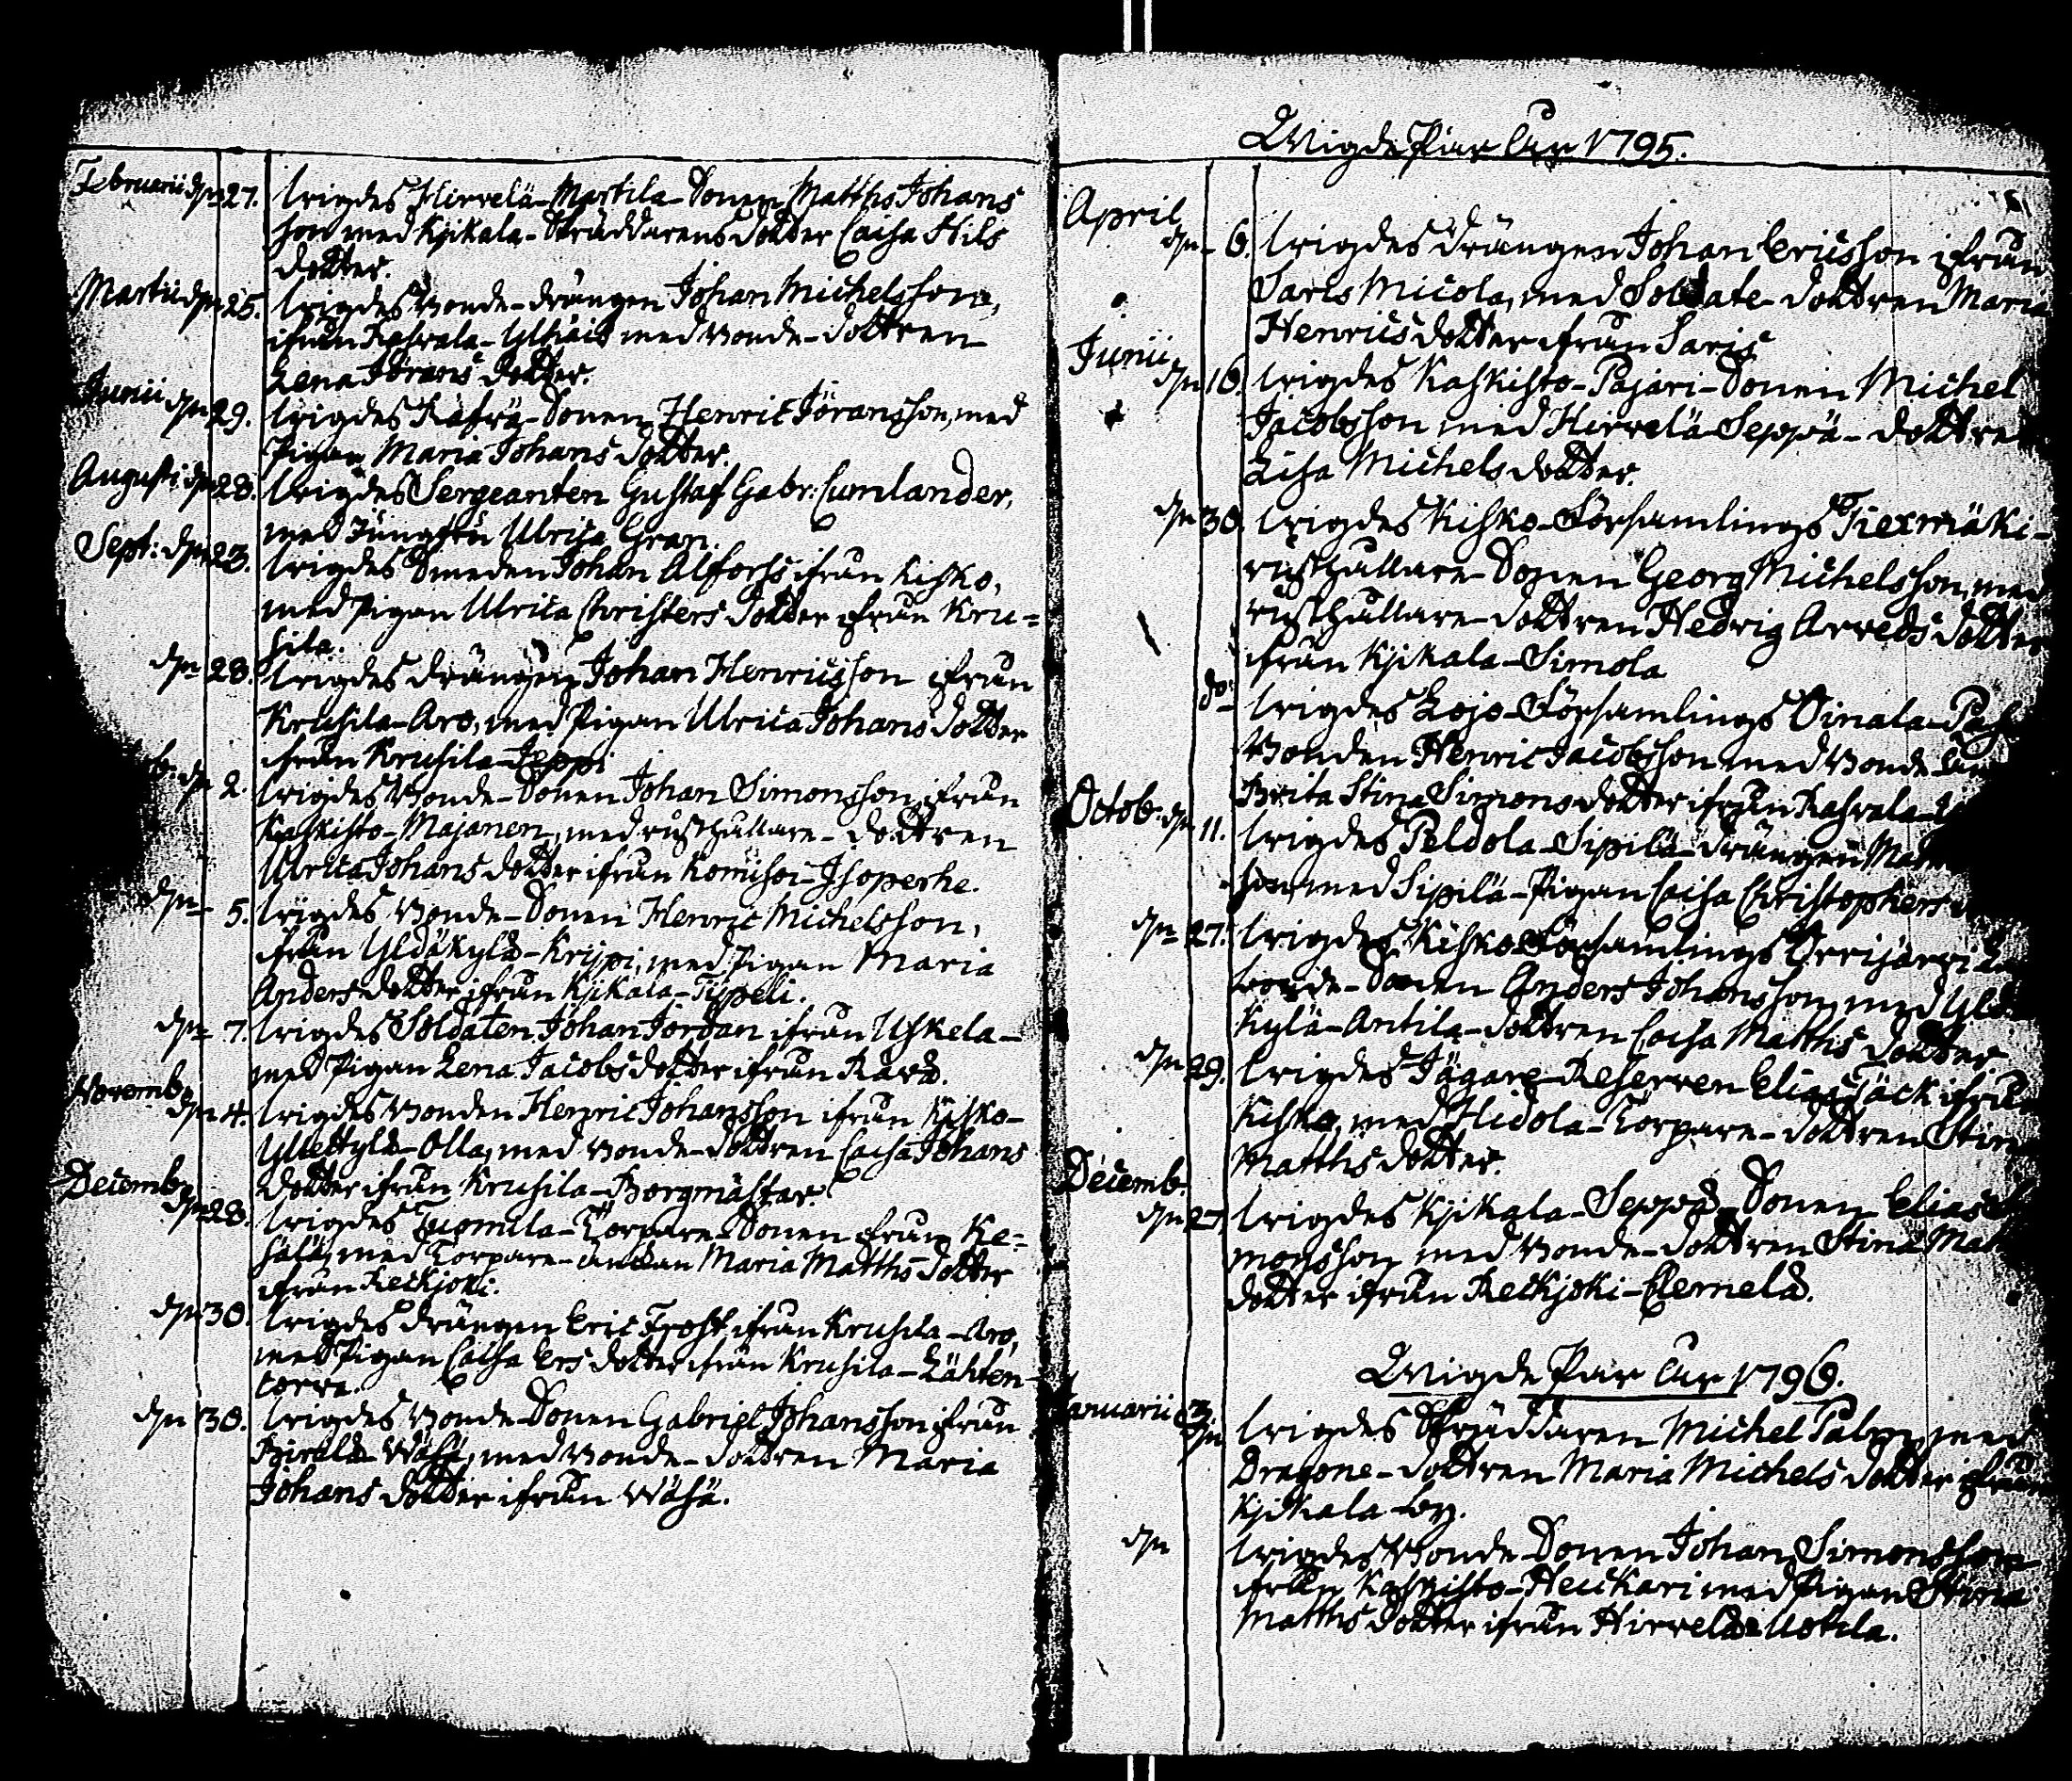 Februarii d. 27. wigdes Hirvelä-Martila-Sonen Matths Johans
son med Kjikala-Skräddarens Dotter Caisa Nils
dotter.
Martii d. 25. wigdes Bonde-drängen Johan Michelsson,
ifrån Rasvala-Ylhäis med Bonde-dottren
Lena Jörans dotter.
Junii d. 29. wigdes Sonen Henric Jöransson, med
Pigan Maria Johans dotter.
Augusti d. 28. wigdes Sergeanten Gustaf Gabr: Cumlander,
med Jungfru Ulrica Gran.
Sept: d. 23. wigdes Smeden Johan Alfors ifrån Kisko,
med Pigan Ulrica Christers dotter ifrån Kru=
sila.
d. 28. wigdes drängen Johan Henricsson ifrån
Krusila-Aro, med Pigan Ulrica Johans dotter
ifrån Krusila-Seppi
d. 2. wigdes Bonde-Sonen Johan Simonsson ifrån
Kaskisto-Majanen, med rusthållare-dottren
Ulrica Johans dotter ifrån Komisoi-Isoperhe.
d. 5. wigdes Bonde-Sonen Henric Michelsson,
ifrån Yldäkylä-Krijpi, med Pigan Maria
Anders dotter ifrån Kjikala-Typpeli.
d. 7. wigdes Soldaten Johan Jordan ifrån Uskela-
med Pigan Lena Jacobs dotter ifrån
Novemb. d. 4. wigdes Bonden Henric Johansson ifrån Kisko-
Olla, med Bonde-dottren Caisa Johans
dotter ifrån Krusila-Borgmästar
Decemb. d. 28. wigdes Tuomila-Torpare-Sonen ifrån Ke=
sälä, med Torpare-änkan Maria Matths dotter
ifrån Reckjoki.
d. 30. wigdes drängen Eric Frost, ifrån Krusila-Aro,
med Pigan Caisa Ers dotter ifrån Krusila-Lähten
corva.
d. 30. wigdes Bonde-Sonen Gabriel Johansson ifrån
Wähä, med Bonde-dottren Maria
Johans dotter ifrån Wähä.
Wigde Par År 1795.
April d. 6. wigdes Drängen Johan Ericsson ifrån
Saris Micola, med Soldate-dottren Maria
Henrics dotter ifrån Saris
Junii d. 16. wigdes Kaskisto-Pajari-Sonen Michel
Jacobsson med Hirvelä-Seppä-dottren
Lisa Michels dotter.
d. 30. wigdes Kisko-Församlings Tiexmäki-
rusthållare-Sonen Georg Michelsson, med
rusthållare-dottren Hedvig Arveds dotter
ifrån Kjikala-Simola
do. wigdes Lojo-Församlings Oinala-
Bonden Henric Jacobsson med Bonde
Brita Stina Simons dotter ifrån Rasvala
Octob. d. 11. wigdes Peldola-Sipilä-drängen
son, med Sipilä-Pigan Caisa Christophers
d. 27. wigdes Kisko-Församlings Orrijärvi
Bonde-Sonen Anders Johansson, med Yldä
kylä-Antila-dottren Caisa Matths dotter
d. 29. wigdes Jägare-Reserven Elias Jäck ifrån
Kisko, med Hidola-Torpare-dottren Stina
Matths dotter.
Decemb. d. 27. wigdes Kjikala-Seppä-Sonen Elias
monsson med Bonde-dottren Stina
dotter ifrån Reckjoki-Clemelä.
Wigde Par År 1796.
Januarii 3 d. wigdes Skräddaren Michel Palm, med
Dragone-dottren Maria Michels dotter ifrån
Kjikala by.
d. wigdes Bonde-Sonen Johan Simonsson
ifrån Kaskisto-Heickari med Pigan Stina
Matths dotter ifrån Hirvelä-Uotila.